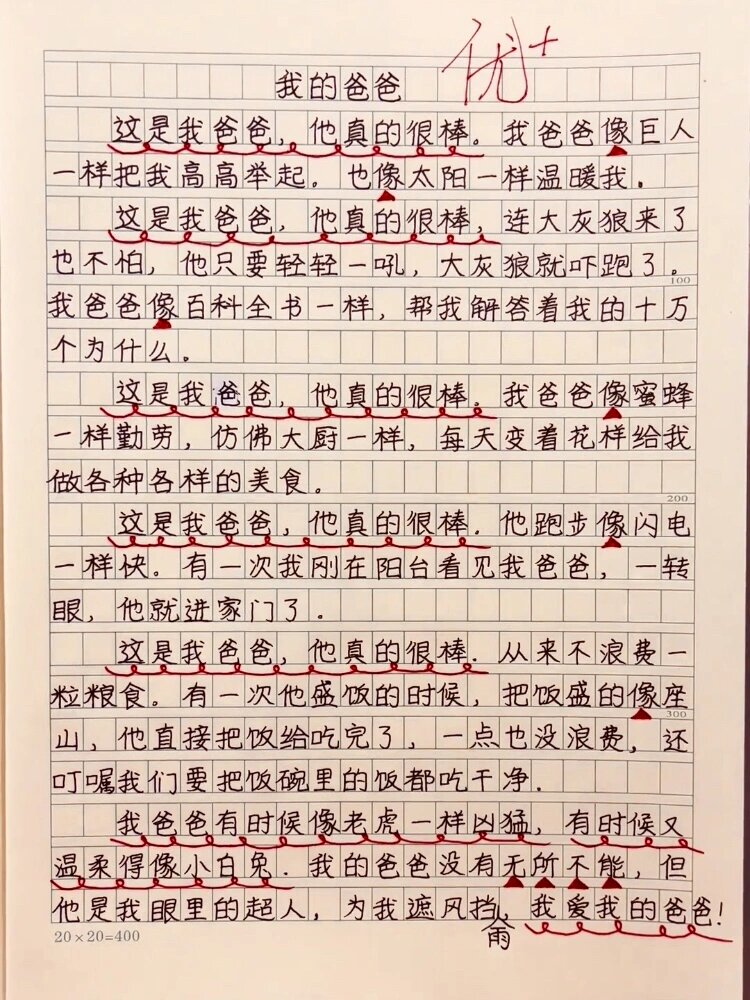 优+
我的爸爸
这是我爸爸，他真的很棒。我爸爸像巨人
一样把我高高举起。也像太阳一样温暖我。
这是我爸爸，他真的很棒，连大灰狼来了
也不怕，他只要轻轻一吼，大灰狼就吓跑了。
100
我爸爸像百科全书一样，帮我解答着我的十万
个为什么。
这是我爸爸，他真的很棒。我爸爸像蜜蜂
一样勤劳，仿佛大厨一样，每天变着花样给我
做各种各样的美食。
200
这是我爸爸，他真的很棒．他跑步像闪电
一样快。有一次我刚在阳台看见我爸爸，一转
眼，他就进家门了．
这是我爸爸，他真的很棒．从来不浪费一
粒粮食。有一次他盛饭的时候，把饭盛的像座
300
山，他直接把饭给吃完了，一点也没浪费，还
叮嘱我们要把饭碗里的饭都吃干净．
我爸爸有时候像老虎一样凶猛，有时候又
温柔得像小白兔．我的爸爸没有无所不能，但
他是我眼里的超人，为我遮风挡，我爱我的爸爸！
雨
20×20=400